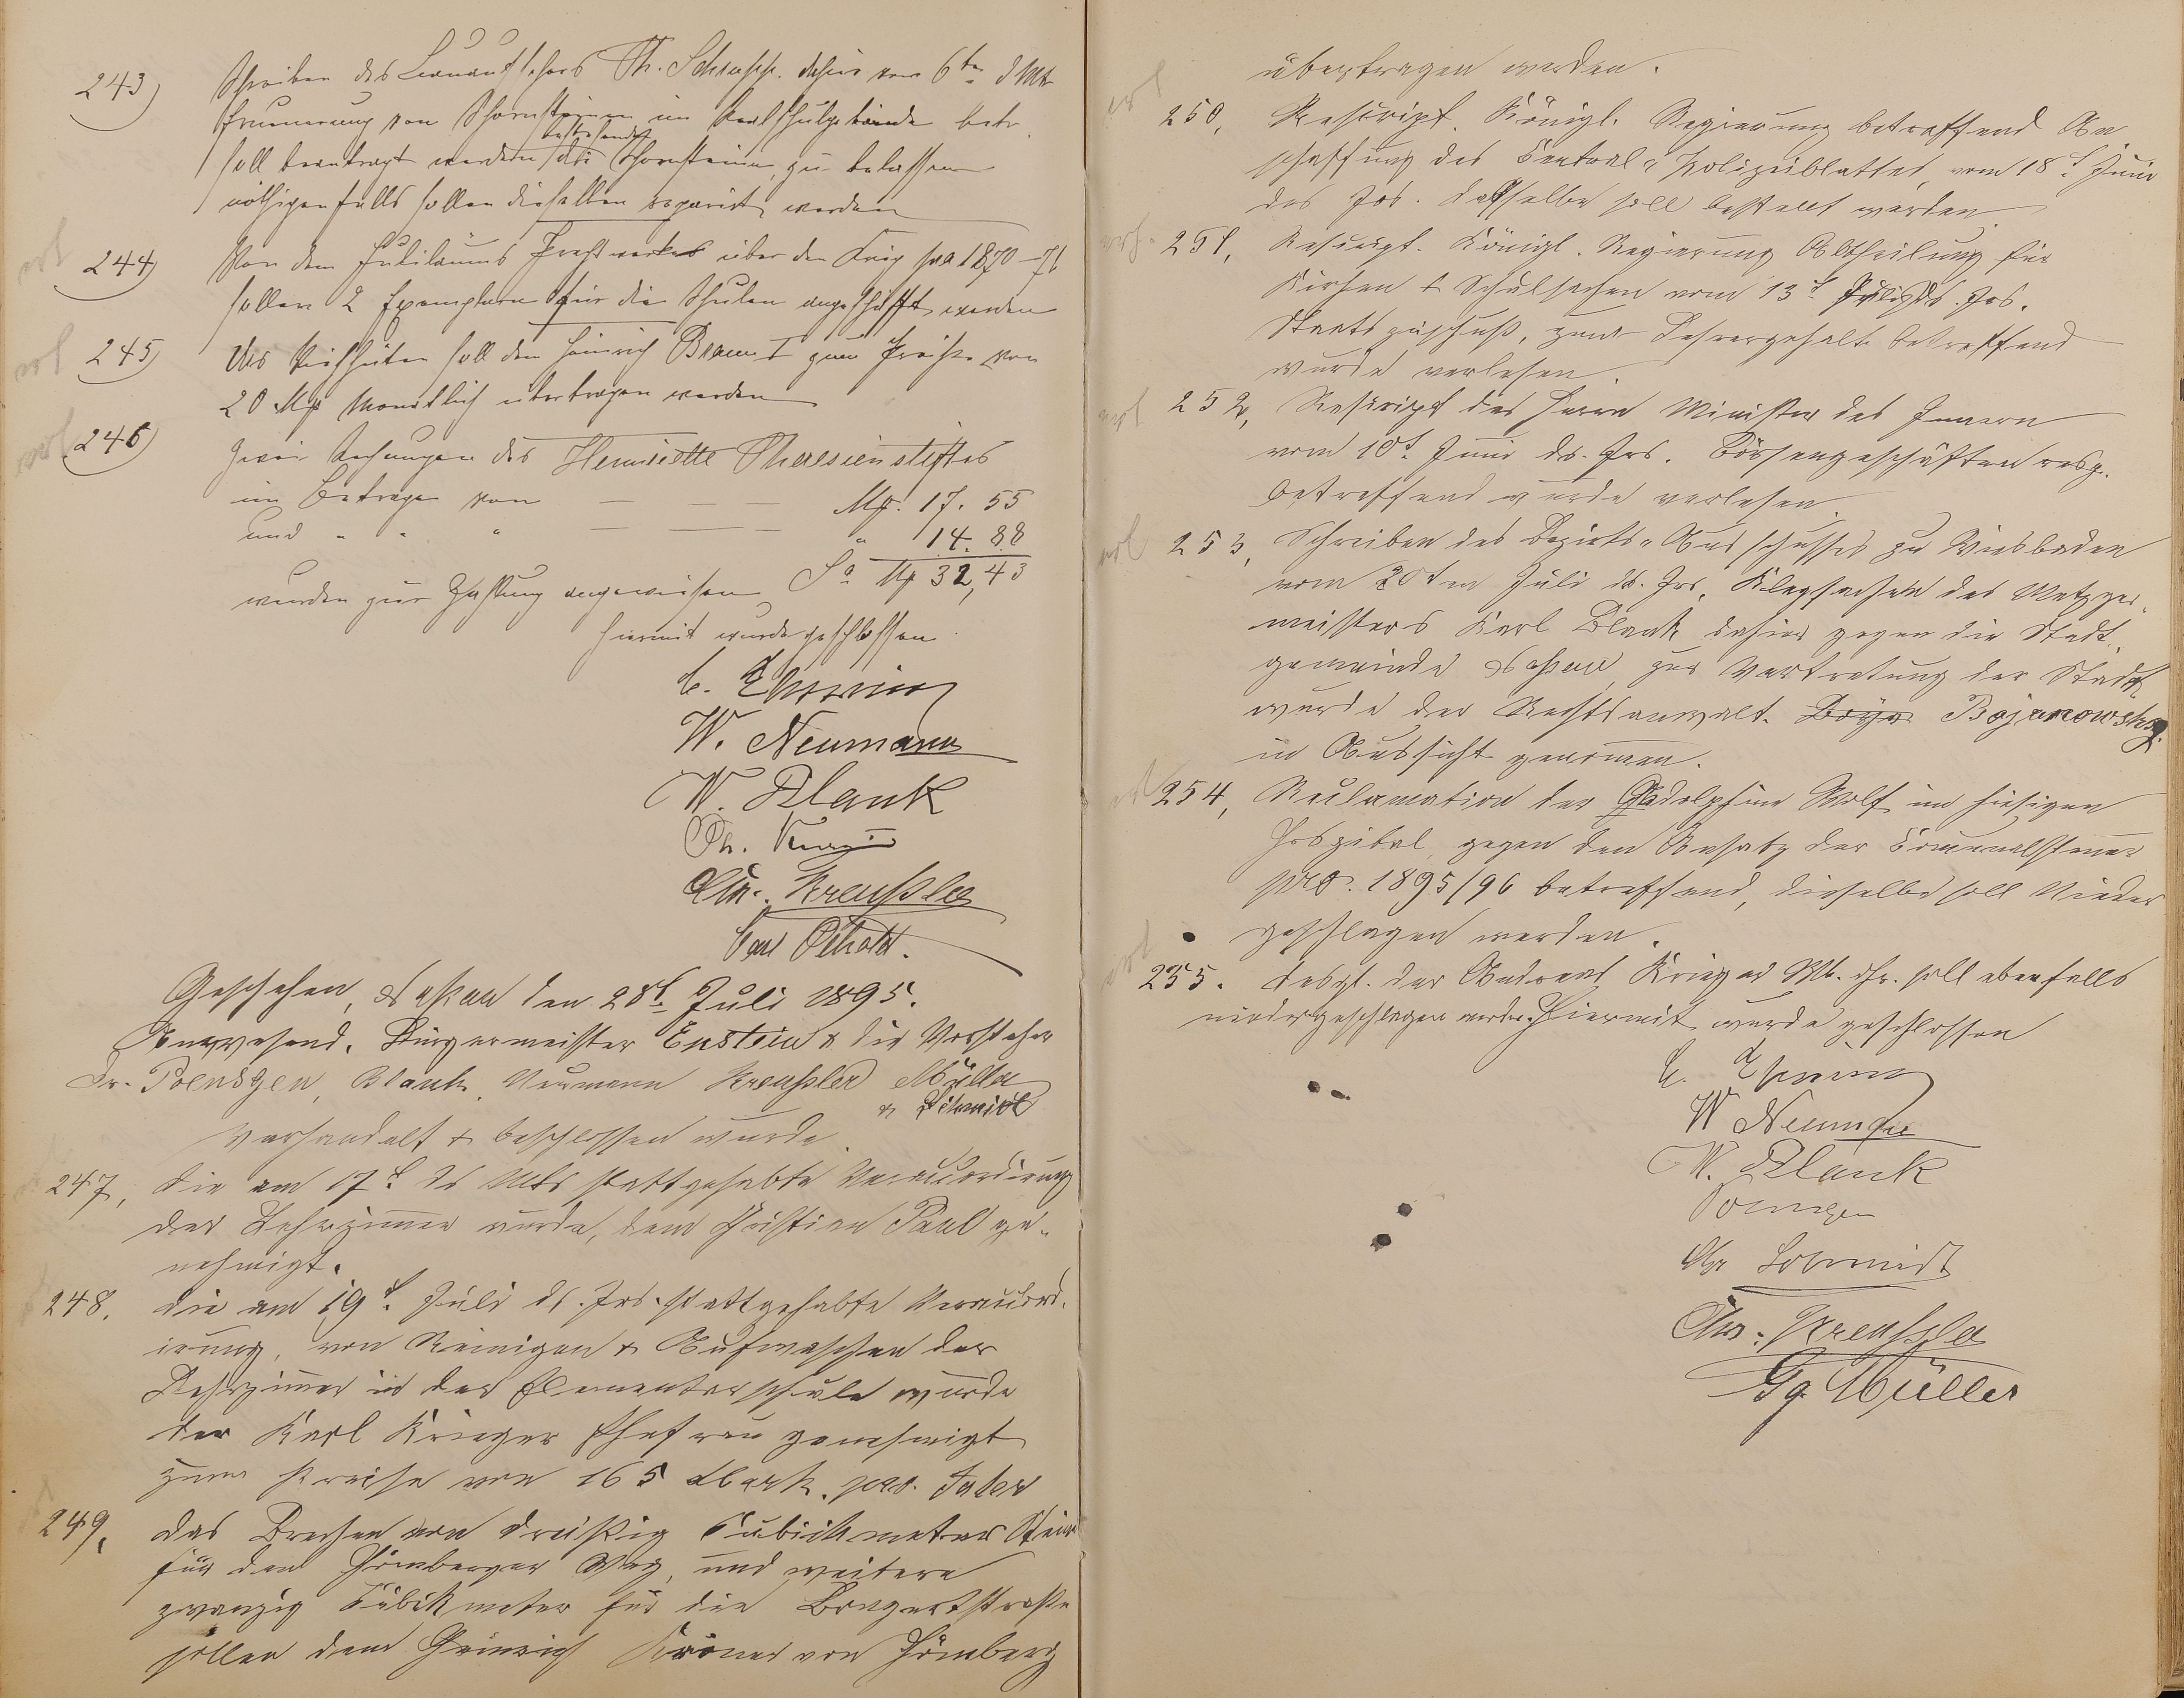 243) Schreiben des Th. Schrupp. dahier vom 6ten d Mts
Erneuerung von Schornsteinen im Realschulgebäude betr.
soll beantragt werden die Schornsteine, zu belassen
bestehenden
nöthigenfalls sollen dieselben reparirt werden
244) Von dem Jubiläums Prachtwerkes über den Krieg pro 1870–71
sollen 2 Exemplare für die Schulen angeschafft werden
245) Das soll dem Heinrich Braun I zum Preise von
20 Mk monatlich übertragen werden
246) Zwei Rechnungen des Henriette Theresienstiftes
im Betrage von — — — Mk. 17. 55
und " " " — — — " 14. 88
Sa Mk 32,43
wurden zur Zahlung angewiesen
Hiermit wurde geschlossen.
W. Neumann
W. Blank
Chr. Kreußler
Geschehen, Naßau den 28t. Juli 1895.
Anwesend. Bürgermeister Epstein & die Vorsteher
Dr. Poensgen, Blank, Neumann Kreußler Müller
& Schmidt
Verhandelt & beschlossen wurde.
247, Die am 17t. ds Mts stattgehabte Veraccordirung
der Lehrzimmer wurde, dem Christian Paul ge-
nehmigt.
248. Die am 19t. Juli ds. Jrs. stattgehabte Veraccord-
irung, von Reinigen & Aufwaschen der
Lehrzimmer in der Elementarschule wurde
der Karl Krieger Ehefrau genehmigt
zum Preise von 165 Mark. pro. Jahr
249. Das Brechen von dreißig Cubickmeter Stein
für den Hömberger Weg, und weitere
zwanzig Cubickmeter für die Bongertstraße
sollen dem Heinrich Kröner von Hömberg
übertragen werden.
250, Rescript. Königl. Regierung betreffend An
schaffung des Central-Polizeiblattes, vom 18t. Juni
des Jrs. dasselbe soll bestellt werden
251, Rescript. Königl. Regierung Abtheilung für
Kirchen & Schulsachen vom 13t. Juli ds. Jrs.
Staatszuschuß, zum Lehrergehalte betreffend
wurde verlesen.
252, Rescript des Herrn Minister des Innern
vom 10t. Juni ds. Jrs. Börsengeschäften resp.
betreffend wurde verlesen.
253, Schreiben des Bezirks-Ausschusses zu Wiesbaden
vom 20ten Juli ds. Jrs, Klagsachen des Metzger-
meisters Karl Blank dahier gegen die Stadt-
gemeinde Naßau, zur Vertretung der Stadt
wurde der Rechtsanwalt. Bojanowsky
in Aussicht genomen.
254, Reclamation der Adolphine Wolf im hiesigen
Hospital, gegen den Ansatz der Comunalsteuer
pro. 1895/96 betreffend, dieselbe soll Nieder
geschlagen werden.
255. desgl. der Andreas Krieger Wb. dhr. soll ebenfalls
niedergeschlagen werden. Hiermit wurde geschlossen
W Neumann
W. Blank
Poensgen
Chr Schmidt
Chr. Kreußler
Gg. Müller